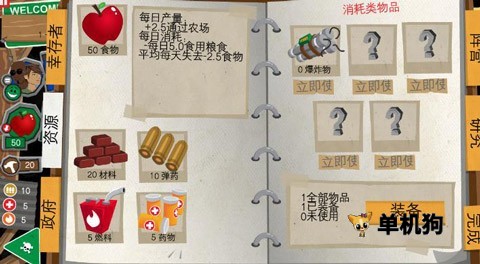 WELCOM
幸存者
资源
政府
50
20
10
5
5
50 食物
每日产量
+2.5通过农场
每日消耗
-每日5.0食用粮食
平均每天失去-2.5食物
20 材料
10 弹药
5 燃料
5 药物
消耗类物品
0 爆炸物
立即使
立即使
立即使
立即使
立即使
1全部物品
1已装备
0未使用
装备
单机狗
研究
完成